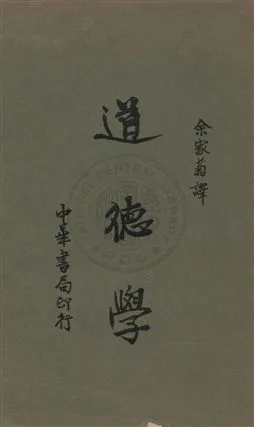 余家菊譯
道德學
中華書局印行